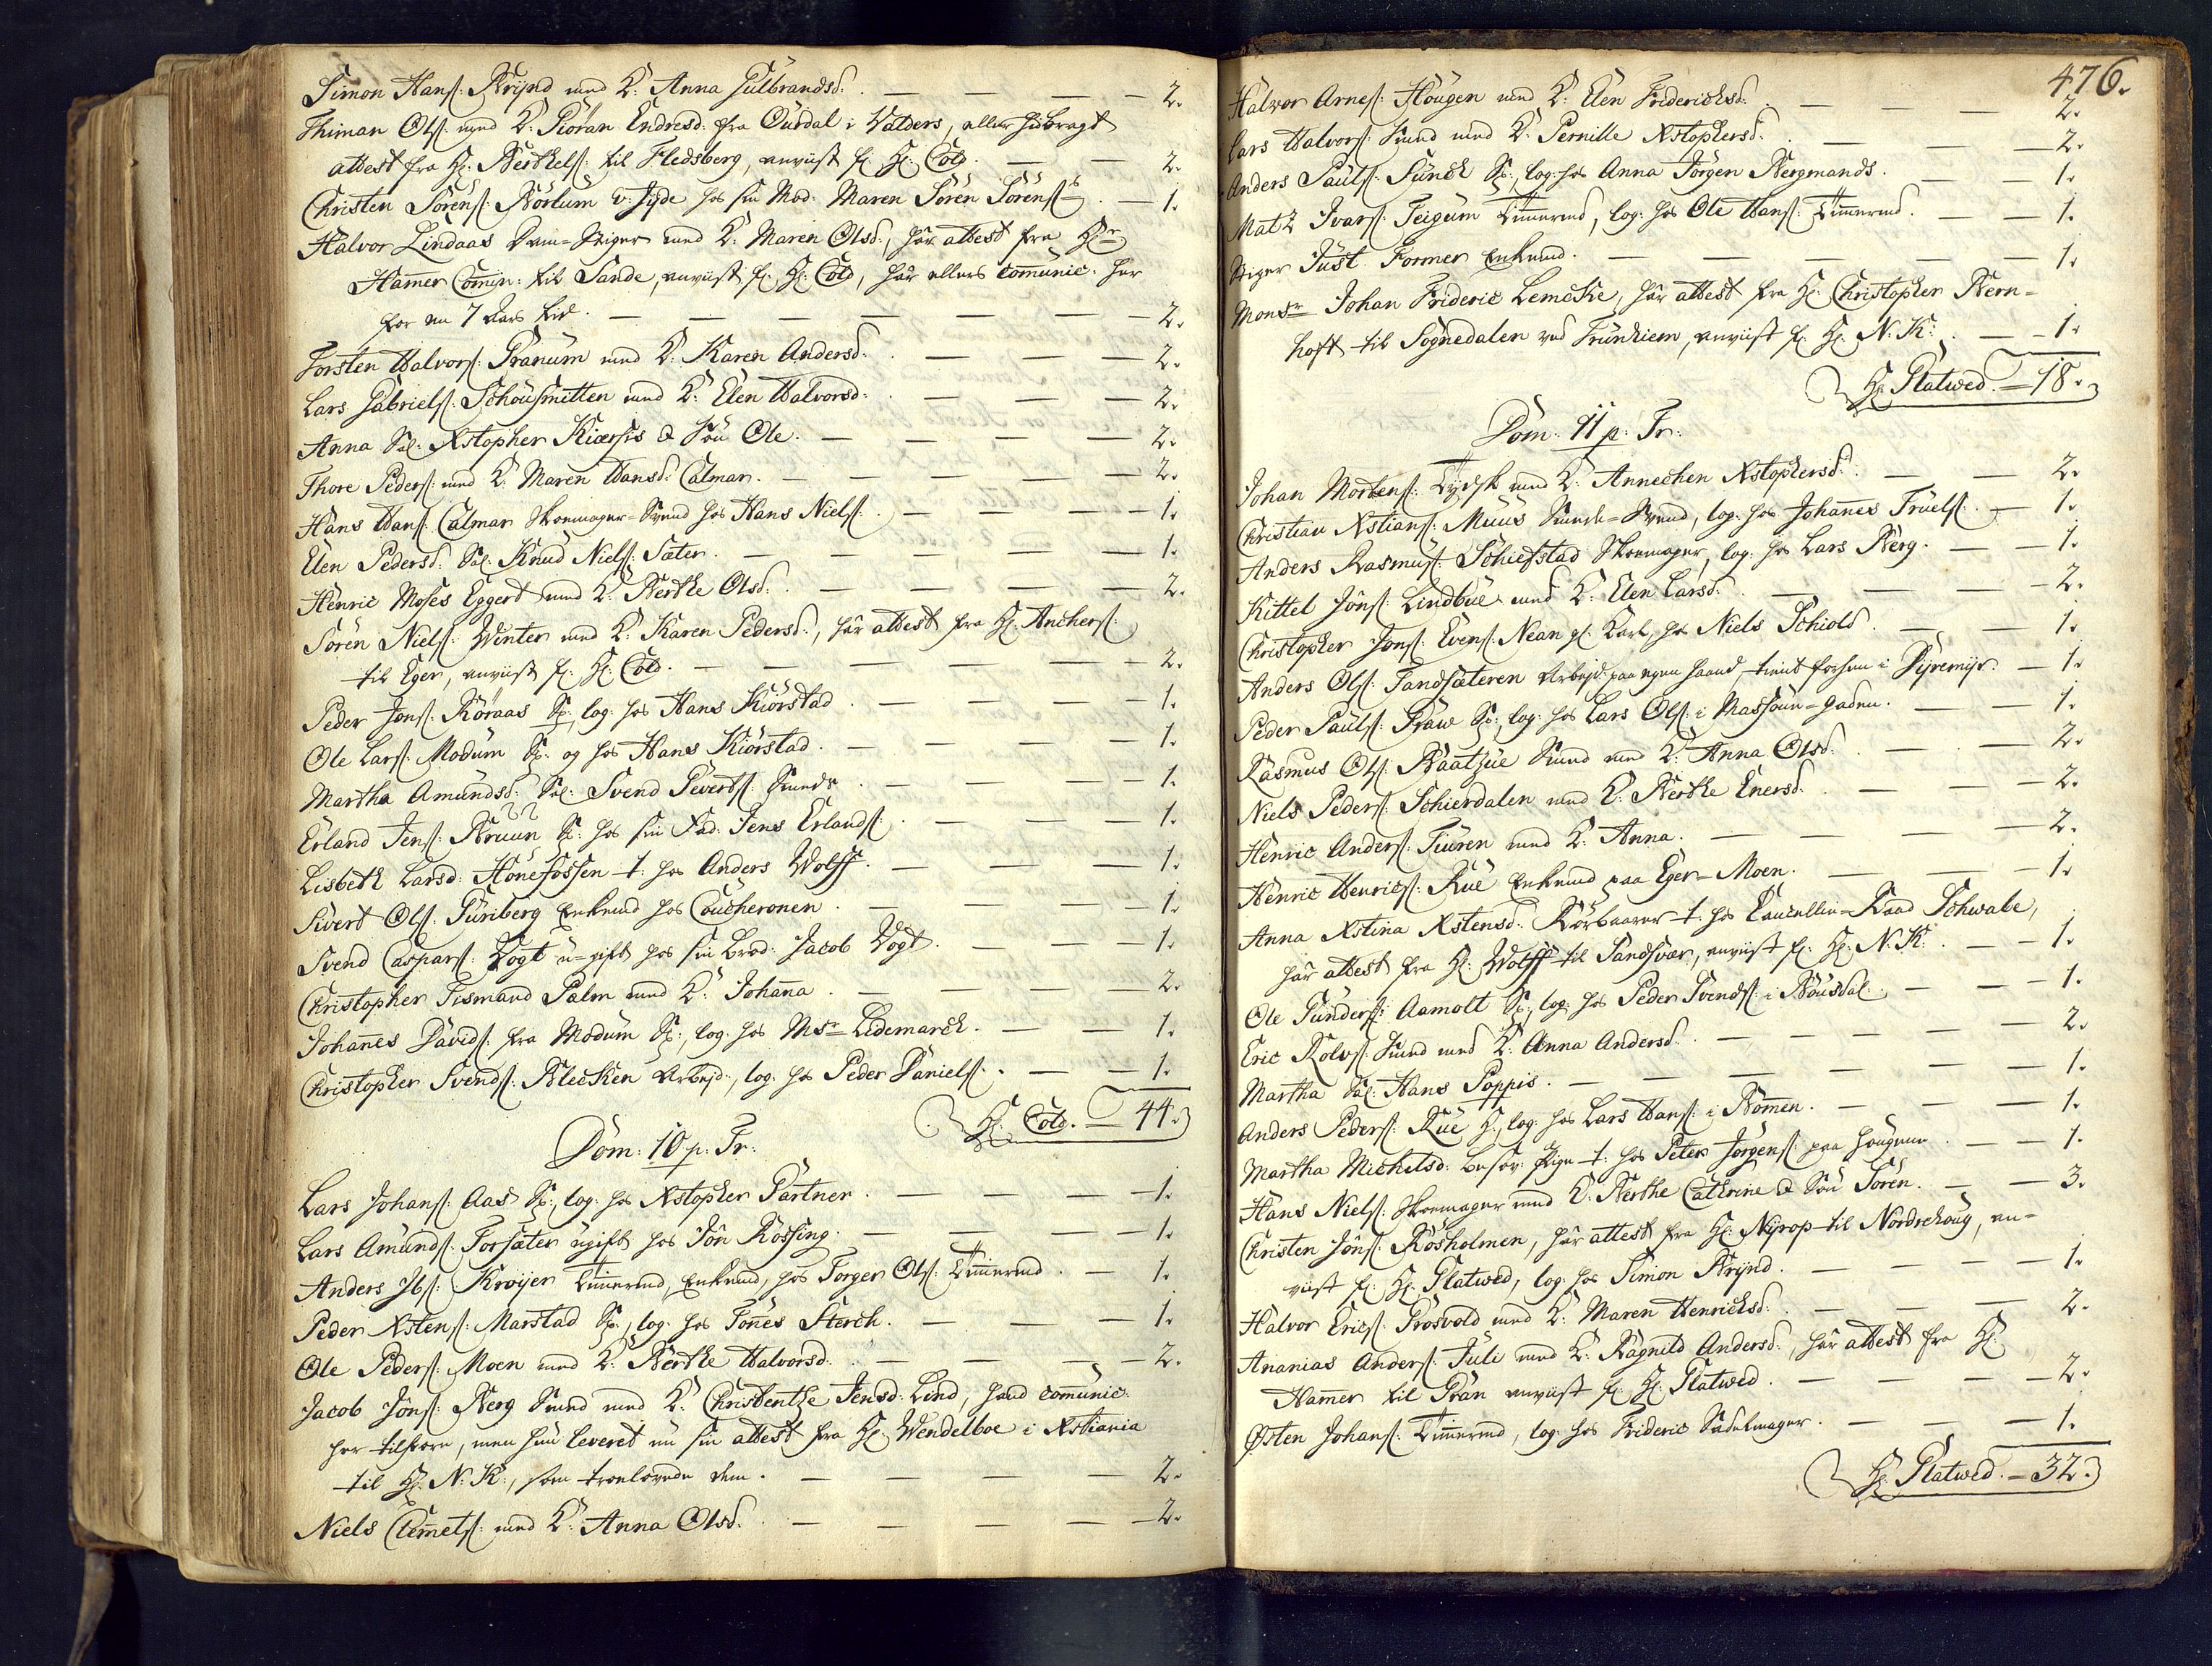 Simon Hans: Brynd med K: Anna Gulbrandsd. — 2.
Thiman Ols: med K: Giöran Endresd. fra Ourdal i Walders, eller hidbragt
attest fra Hr: Berthels: til Fledsberg, anviist f: Hr: Cold. — 2.
Christen Sörens: Börlum hos sin Mod. Maren Sören Sörens: — 1.
Halvor Lindaas Stiger med K: Maren Olsd., har attest fra Hr
Hamer til Sande, anviist f: Hr: Cold, har ellers comunic. her
for en 7 Aars tid. — 2.
Torsten Halvors: Granum med K: Karen Andersd. — 2.
Lars Gabriels: Schousmitten med K: Elen Halvorsd. — 2.
Anna Sal: Xstopher Kiærsis & Sön Ole. — 2.
Thore Peders: med K: Maren Hansd. Calmar. — 2.
Hans Hans: Calmar Skoemager-Svend hos Hans Niels: — 1.
Elen Pedersd. Sal: Knud Niels: Sæter. — 1.
Henric Moses Eggert med K: Berthe Olsd. — 2.
Sören Niels: Winter med K: Karen Pedersd., har attest fra Hr: Anchers:
til Eger, anviist f: Hr: Cold. — 2.
Peder Jons: Röraas log: hos Hans Kiörstad. — 1.
Ole Lars: Modum og hos Hans Kiörstad. — 1.
Martha Amundsd. Sal: Svend Siverts: — 1.
Erland Jens: Bruun hos sin Fad: Jens Erlands: — 1.
Lisbeth Larsd. Hönefossen t: hos Anders Wolff. — 1.
Sivert Ols: Puriberg Enkemd hos Coucheronen. — 1.
Svend Caspars: Vogt u-gift hos sin Brod: Jacob Vogt. — 1.
Christopher Tismand Palm med K: Johanna. — 2.
Johannes Davids: fra Modum log: hos Msr Lidemarck. — 1.
Christopher Svends: Blecken Arbejd:, log: hos Peder Daniels: — 1.
Hr: Cold. — 44.
Dom: 10 p: Tr:
Lars Johans: Aas log: hos Xstopher Gartner. — 1.
Lars Amunds: Torsæter ugift hos Jön Rössing. — 1.
Anders Ibs: Kroijer Tömmermd, Enkemd, hos Torger Ols: Tömmermd. — 1.
Peder Xstens: Marstad log: hos Tönnes Sterch. — 1.
Ole Peders: Moen med K: Berthe Halvorsd. — 2.
Jacob Jöns: Berg Smed med K: Christentze Jensd. Lind, hand comunic:
her tilforn, men hun leveret nu sin attest fra Hr: Wendelboe i Xstiania
til Hr: N. K:, som troelovede dem. — 2.
Niels Clemets: med K: Anna Olsd. — 2.
476.
Halvor Arnes: Hougen med K: Elen Friderichsd. — 2.
Lars Halvors: med K: Pernille Xstophersd. — 2.
Anders Pauls: Funck log: hos Anna Jörgen Bergmands. — 1.
Matz Ivars: Teigum Tömmermd, log: hos Ole Hans: Tömmermd. — 1.
Stiger Just Former Enkemd. — 1.
Monsr Johan Frideric Lemcke, har attest fra Hr: Christopher Bern-
hoft til Sognedalen ved Trunhiem, anviist f: Hr: N. K: — 1.
Hr: Platwed. — 18.
Dom: 11 p: Tr:
Johan Mortens: Tydsk med K: Annechen Xstophersd. — 2.
Christian Xstians: Muus Svend, log: hos Johanes Truels: — 1.
Anders Rasmus: Schiefstad Skoemager, log: hos Lars Berg. — 1.
Kittel Jöns: Lindbue med K: Elen Larsd. — 2.
Christopher Jons: Evens: Nean g: Karl, hos Niels Schiold. — 1.
Anders Ols: Tandsæteren Arbejd: paa egen haand, tient forhen i Dyremyr. — 1.
Peder Pauls: Fraw log: hos Lars Ols: i Massoun-gaden. — 1.
Rasmus Ols: Baatzüe med K: Anna Olsd. — 2.
Niels Peders: Schierdalen med K: Berthe Enersd. — 2.
Henric Anders: Fiüren med K: Anna. — 2.
Henric Henrics: Rüe Enkemd paa Eger-Moen. — 1.
Anna Xstina Xstensd. Körbaarer t: hos Cancellie-Raad Schwabe,
har attest fra Hr: Wolff til Sandsvær, anviist f: Hr: N. K: — 1.
Ole Gunders: Aamott log: hos Peder Svends: i Bousdal. — 1.
Eric Rolvs: med K: Anna Andersd. — 2.
Martha Sal: Hans Poppis. — 1.
Anders Peders: Rüe log: hos Lars Hans: i Bommen. — 1.
Martha Michelsd. Pige t: hos Peter Jörgens: paa Hougene. — 1.
Hans Niels: Skoemager med K: Berthe Cathrine & Sön Sören. — 3.
Christen Jöns: Rosholmen, har attest fra Hr: Nyrop til Nordrehoug, an-
viist f: Hr: Platwed, log: hos Simon Brynd. — 1.
Halvor Erics: Grosvold med K: Maren Henrichsd. — 2.
Ananias Anders: Juli med K: Ragnild Andersd., har attest fra Hr:
Hamer til Gran anviist f: Hr: Platwed. — 2.
Østen Johans: Tömmermd, log: hos Frideric Sadelmager. — 1.
Hr: Platwed. — 32.